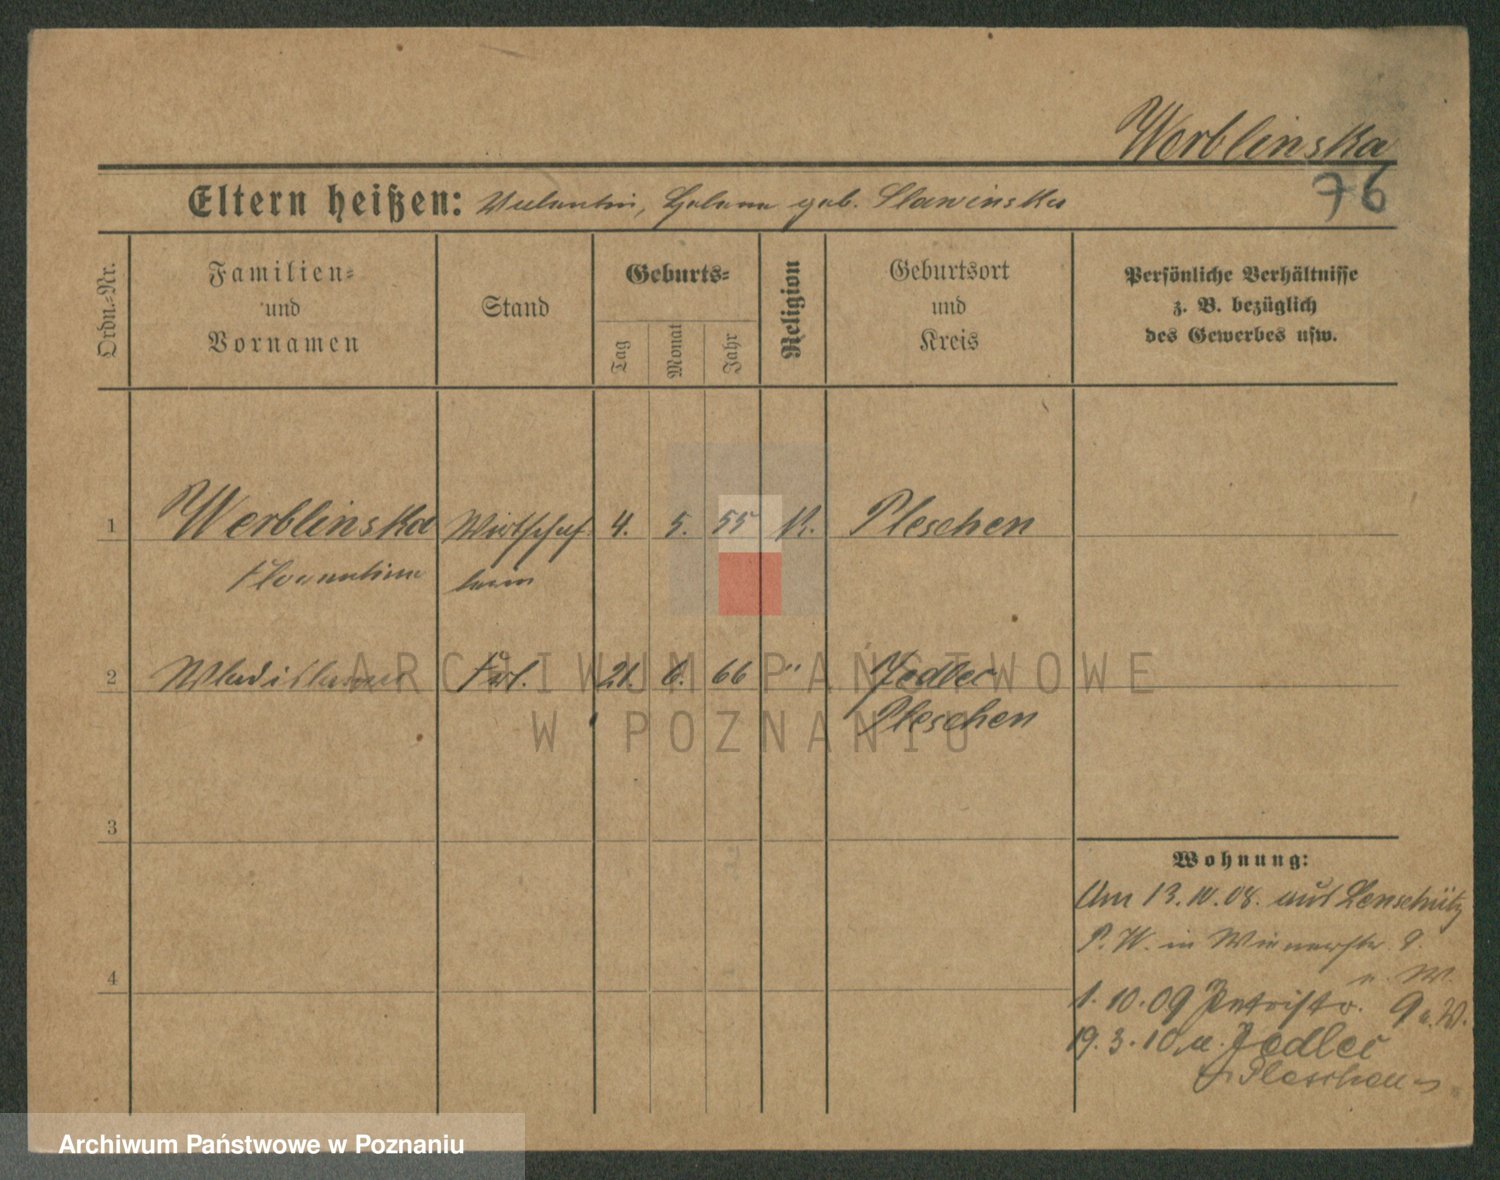 Werblinska
76
Eltern heißen: Valentin, Helena geb. Slawinska
Ordn.=Nr.
Familien=
und
Vornamen
Stand
Geburts=
Tag
Monat
Jahr
Religion
Geburtsort
und
Kreis
Persönliche Verhältnisse
z. B. bezüglich
des Gewerbes usw.
1 Werblinska Wirtschaf- 4. 5. 55 K. Pleschen
Florentine terin
2 Wladislawa Frl. 21. 6. 66 " Jedlec
Pleschen
3
4
Wohnung:
Am 13.10.08. aus Lenschütz
P. W. in Wienerstr. 9.
1.10.09 Petristr. 9 a. W.
19.3.10 n. Jedlec
Pleschen
ARCHIWUM PAŃSTWOWE
W POZNANIU
Archiwum Państwowe w Poznaniu